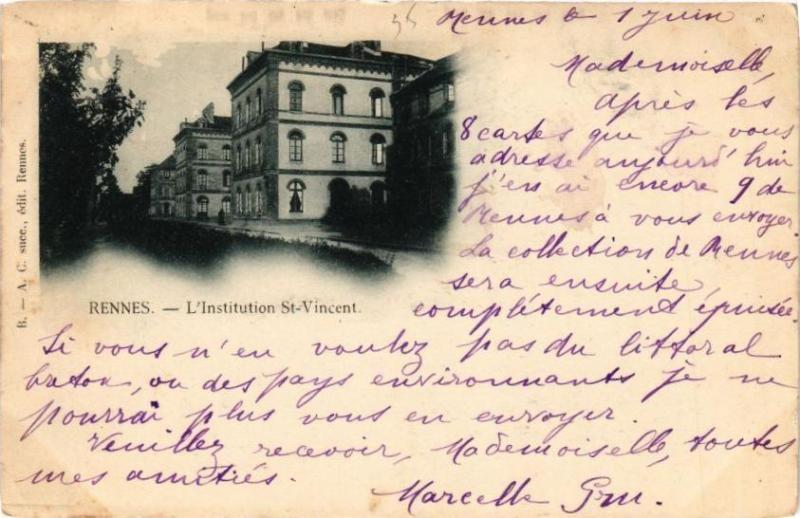 Rennes le 1 Juin
Mademoiselle,
après les
8 cartes que je vous
adresse aujourd'hui
j'en ai encore 9 de
Rennes à vous envoyer.
La collection de Rennes
sera ensuite
complétement épuisée.
B. — A. C. succ., édit. Rennes.
RENNES. — L'Institution St-Vincent.
Si vous n'en voulez pas du littoral
breton, ou des pays environnants je ne
pourrai plus vous en envoyer.
Veuillez recevoir, Mademoiselle, toutes
mes amitiés.
Marcelle